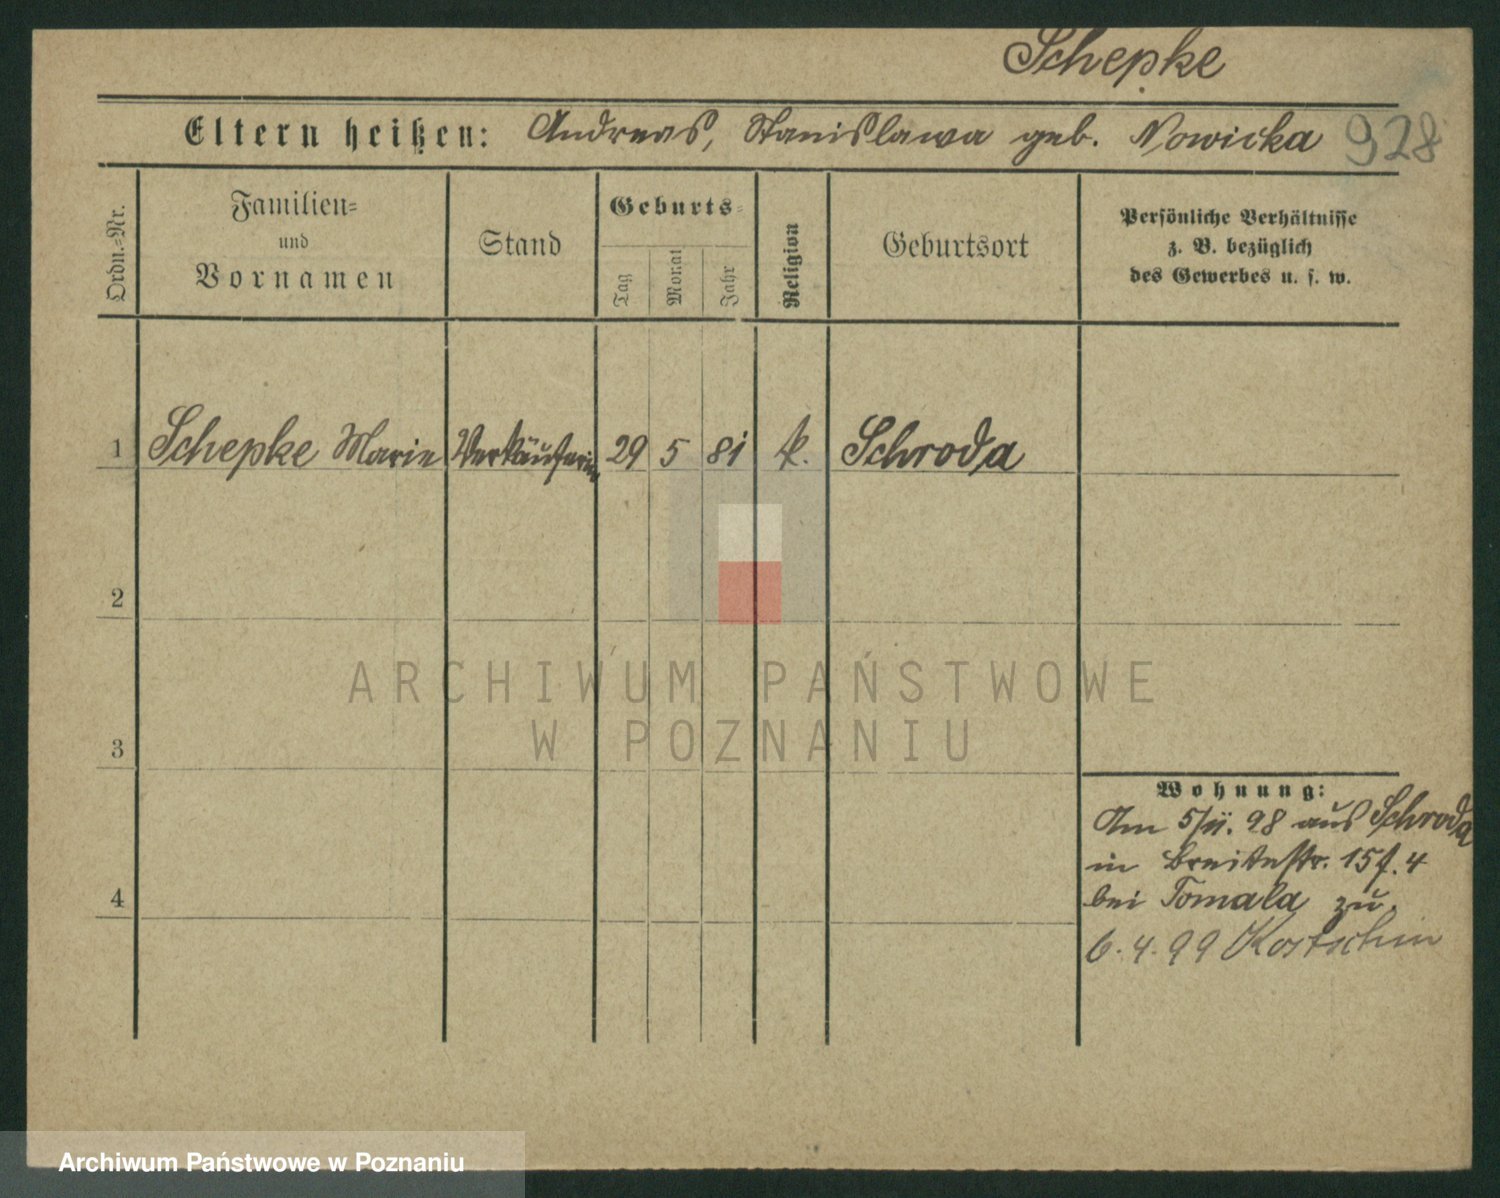 Schepke
Eltern heißen: Andreas, Stanislawa geb. Nowicka 928
Ordn.-Nr.
Familien-
und
Vornamen
Stand
Geburts-
Tag
Monat
Jahr
Religion
Geburtsort
Persönliche Verhältnisse
z. B. bezüglich
des Gewerbes u. s. w.
1 Schepke Marie Verkäuferin 29 5 81 k. Schroda
2
ARCHIWUM PAŃSTWOWE
W POZNANIU
3
Wohnung:
Am 5/11. 98 aus Schroda
in Breitestr. 15 f. 4
4
bei Tomala zu.
6.4.99 Kostschin
Archiwum Państwowe w Poznaniu